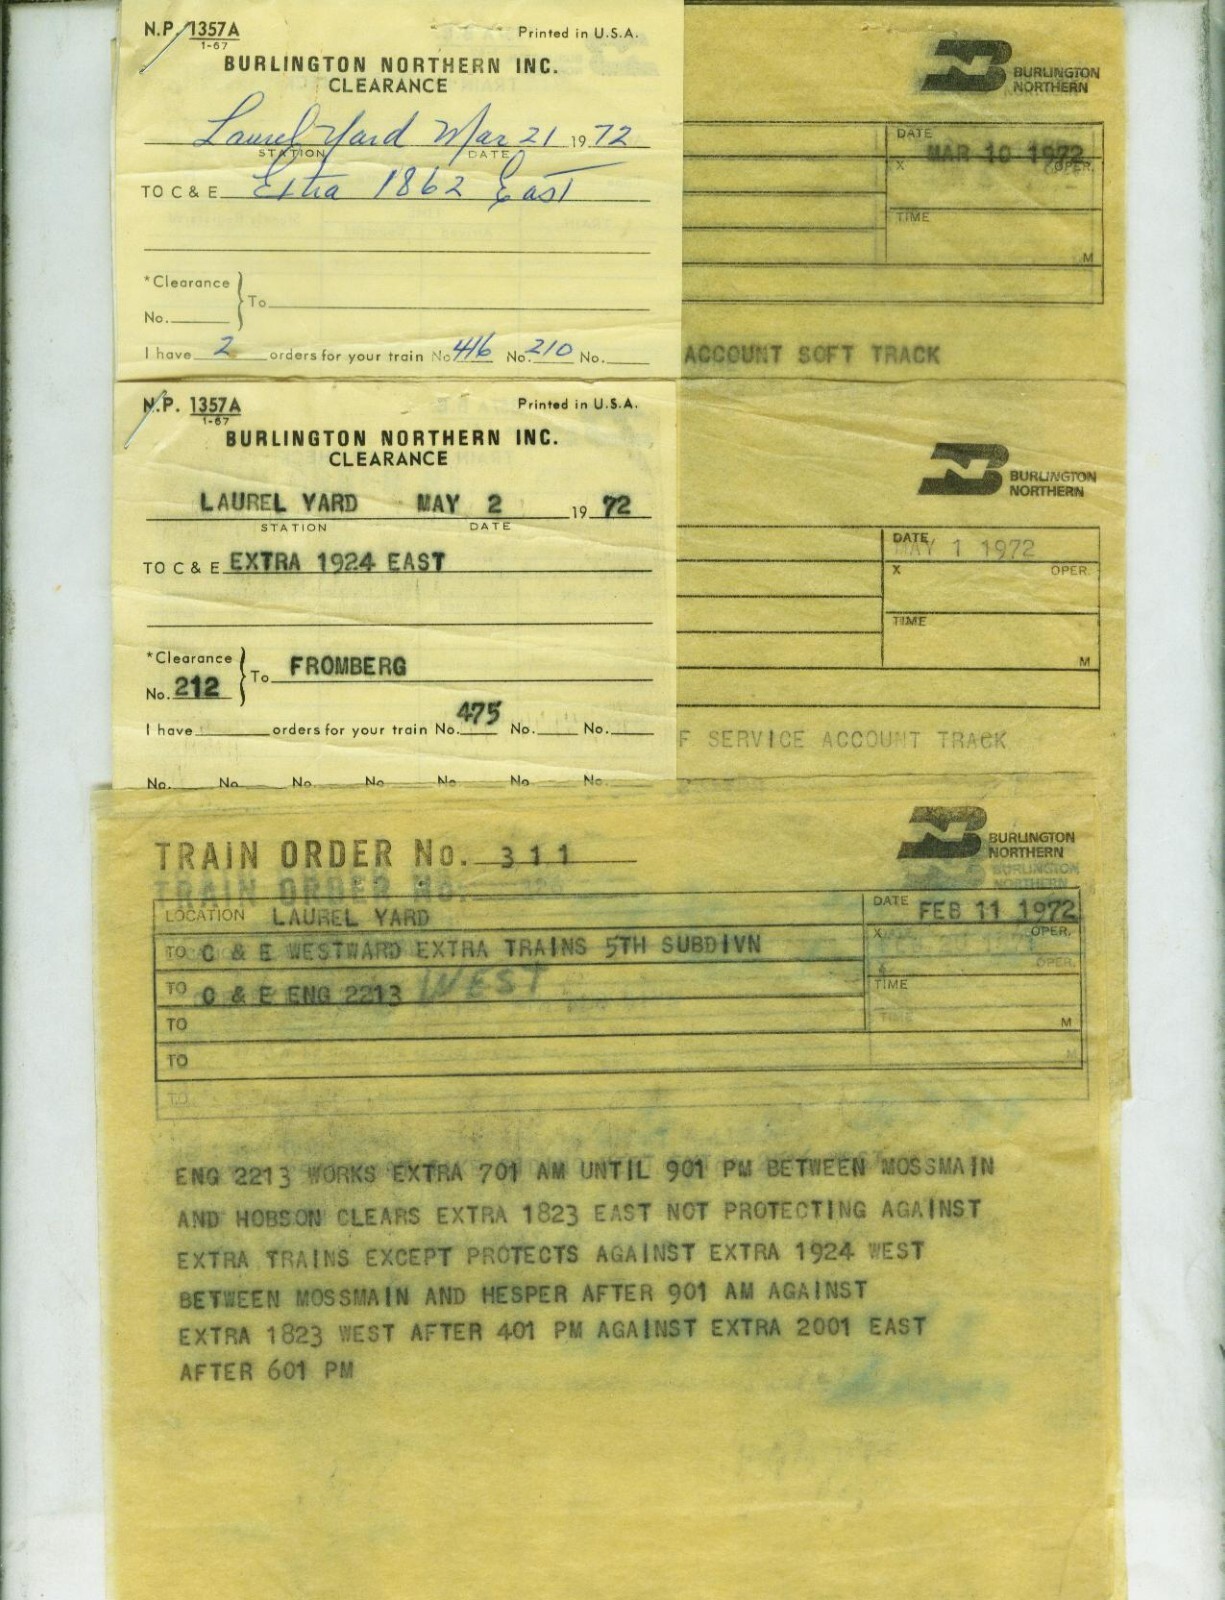 N.P. 1357A
1-67
Printed in U.S.A.
BURLINGTON NORTHERN INC.
CLEARANCE
Laurel Yard Mar 21 1972
STATION DATE
TO C & E Extra 1862 East
*Clearance
No. To
I have 2 orders for your train No. 416 No. 210 No.
BURLINGTON
NORTHERN
DATE
MAR 10 1972
X OPER.
TIME
M
ACCOUNT SOFT TRACK
N.P. 1357A
1-67
Printed in U.S.A.
BURLINGTON NORTHERN INC.
CLEARANCE
LAUREL YARD MAY 2 1972
STATION DATE
TO C & E EXTRA 1924 EAST
*Clearance
No. 212 To FROMBERG
I have orders for your train No. 475 No. No.
No. No. No. No. No. No. No.
BURLINGTON
NORTHERN
DATE
MAY 1 1972
X OPER.
TIME
M
F SERVICE ACCOUNT TRACK
TRAIN ORDER No. 311
TRAIN ORDER No.
BURLINGTON
NORTHERN
BURLINGTON
NORTHERN
LOCATION LAUREL YARD
DATE FEB 11 1972
TO C & E WESTWARD EXTRA TRAINS 5TH SUBDIVN
X OPER.
OPER.
TO C & E ENG 2213 WEST
TIME
TO
TIME
M
TO
M
TO
ENG 2213 WORKS EXTRA 701 AM UNTIL 901 PM BETWEEN MOSSMAIN
AND HOBSON CLEARS EXTRA 1823 EAST NOT PROTECTING AGAINST
EXTRA TRAINS EXCEPT PROTECTS AGAINST EXTRA 1924 WEST
BETWEEN MOSSMAIN AND HESPER AFTER 901 AM AGAINST
EXTRA 1823 WEST AFTER 401 PM AGAINST EXTRA 2001 EAST
AFTER 601 PM